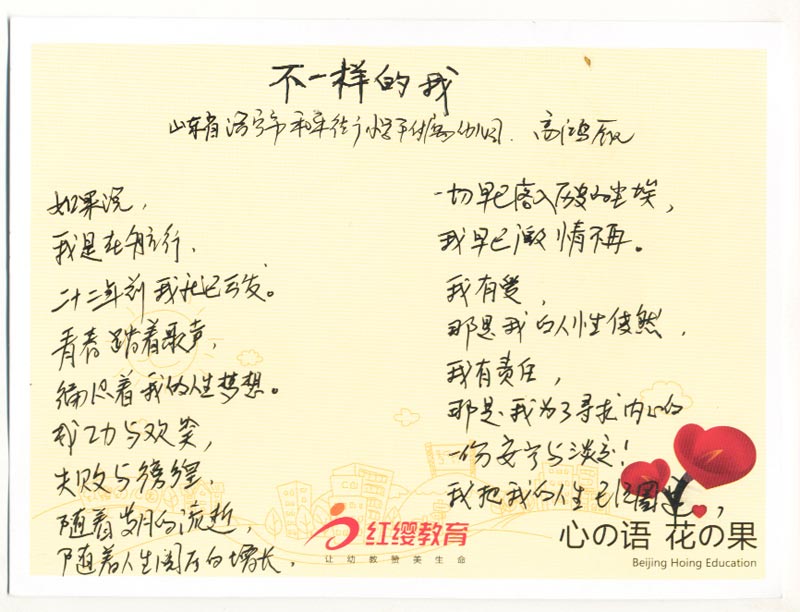 不一样的我
山东省济宁市 街小学附属幼儿园. 高鸿
如果说，
我是在航行，
二十二年前我就已出发。
青春踏着歌声，
编织着我的人生梦想。
成功与欢笑，
失败与彷徨，
随着岁月的流逝，
随着人生阅历的增长，
一切早已落入历史的尘埃，
我早已激情不再。
我有爱，
那是我的人性使然，
我有责任，
那是我为了寻求内心的
一份安宁与淡定！
我把我的人生已经圈定，
红缨教育
让幼教赞美生命
心の语 花の果
Beijing Hoing Education